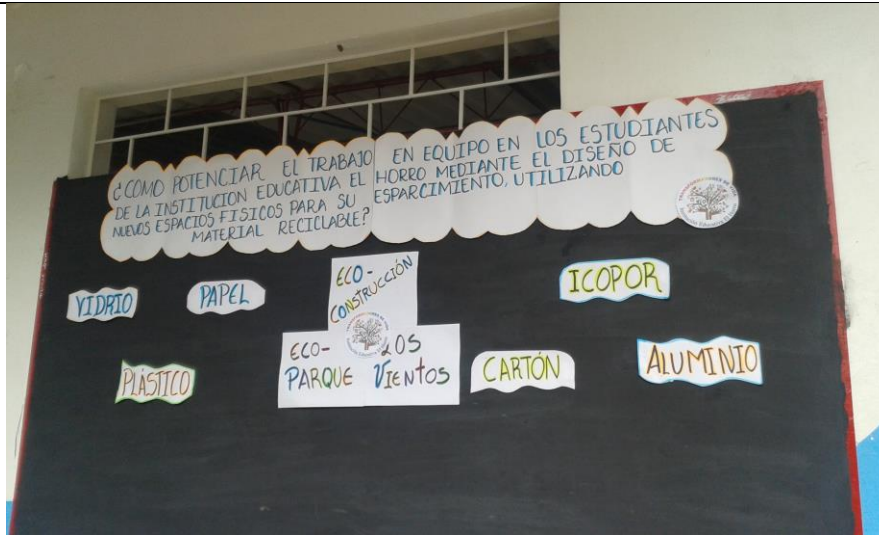 ¿COMO POTENCIAR EL TRABAJO EN EQUIPO EN LOS ESTUDIANTES
DE LA INSTITUCION EDUCATIVA EL HORRO MEDIANTE EL DISEÑO DE
NUEVOS ESPACIOS FISICOS PARA SU ESPARCIMIENTO, UTILIZANDO
MATERIAL RECICLABLE?
VIDRIO
PAPEL
ECO-
CONSTRUCCIÓN
ICOPOR
PLÁSTICO
ECO- LOS
PARQUE VIENTOS
CARTÓN
ALUMINIO